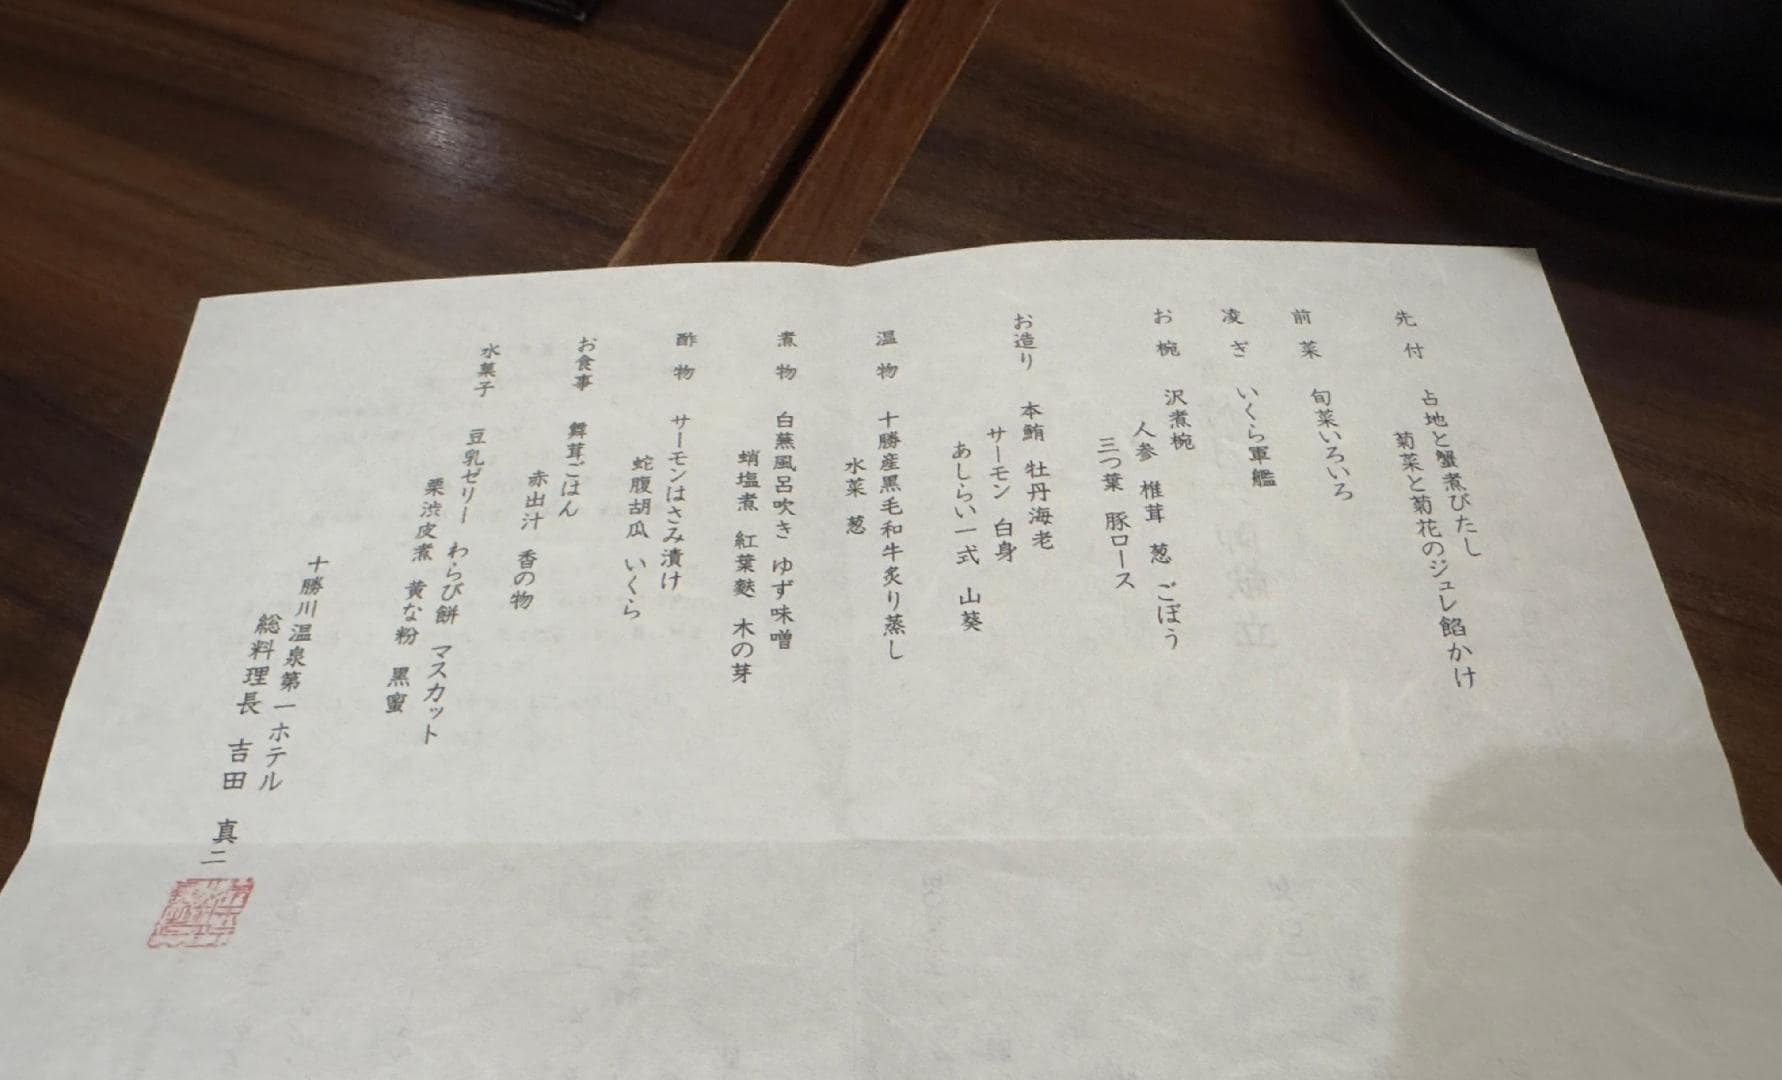 先付 占地と蟹煮びたし
菊菜と菊花のジュレ餡かけ
前菜 旬菜いろいろ
凌ぎ いくら軍艦
お椀 沢煮椀
人参 椎茸 葱 ごぼう
三つ葉 豚ロース
お造り 本鮪 牡丹海老
サーモン 白身
あしらい一式 山葵
温物 十勝産黒毛和牛炙り蒸し
水菜 葱
煮物 白蕪風呂吹き ゆず味噌
蛸塩煮 紅葉麩 木の芽
酢物 サーモンはさみ漬け
蛇腹胡瓜 いくら
お食事 舞茸ごはん
赤出汁 香の物
水菓子 豆乳ゼリー わらび餅 マスカット
栗渋皮煮 黄な粉 黒蜜
十勝川温泉第一ホテル
総料理長 吉田 真二